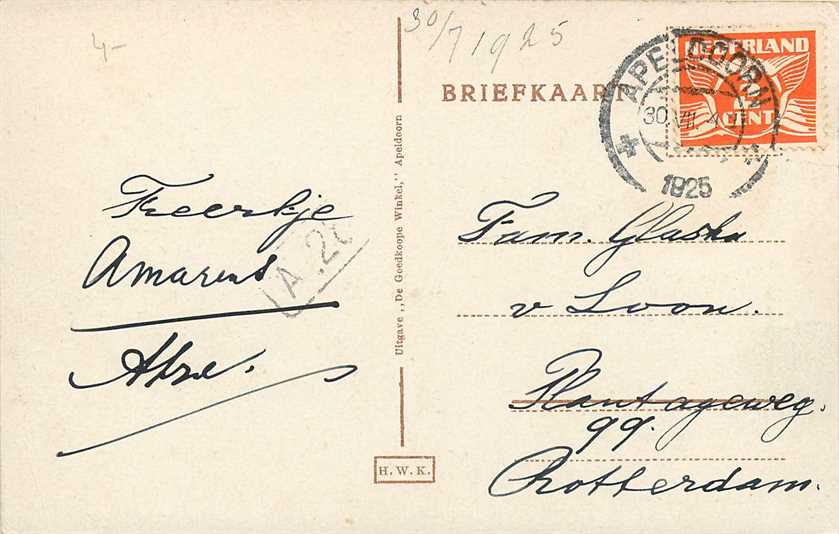 4-
30/7 1925
BRIEFKAART
NEDERLAND
CENT
APELDOORN
30.VII.
1925
Feerkje
Amarens
Atze.
A.2
Uitgave „De Goedkoope Winkel,” Apeldoorn
H.W.K.
Fam. Glashu
v Loon.
Plantageweg.
99.
Rotterdam.